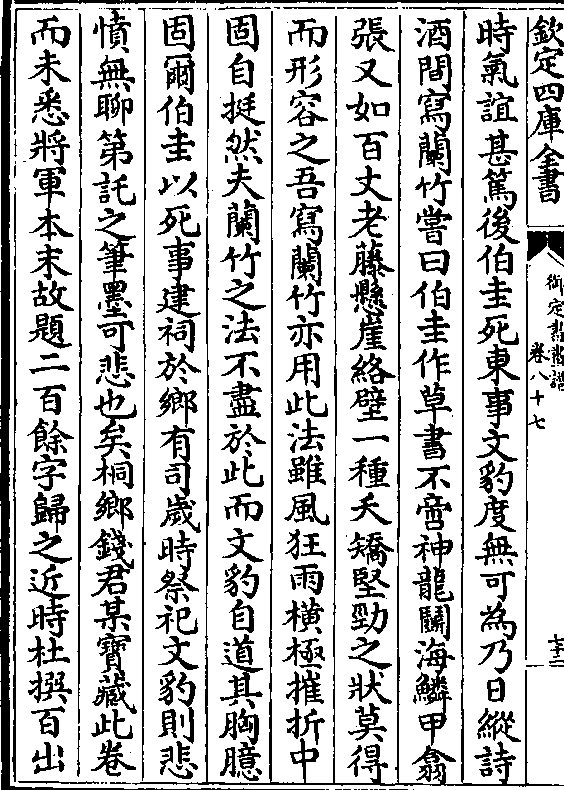 欽定四庫全書
御定書畫譜
卷八十七
七十二
時氣誼甚篤後伯圭死東事文豹度無可為乃日縱詩
酒間寫蘭竹嘗曰伯圭作草書不啻神龍鬭海鱗甲翕
張又如百丈老藤懸崖絡壁一種夭矯堅勁之狀莫得
而形容之吾寫蘭竹亦用此法雖風狂雨橫極摧折中
固自挺然夫蘭竹之法不盡於此而文豹自道其胸臆
固爾伯圭以死事建祠於鄉有司歲時祭祀文豹則悲
憤無聊第託之筆墨可悲也矣桐鄉錢君某寶藏此卷
而未悉將軍本末故題二百餘字歸之近時杜撰百出